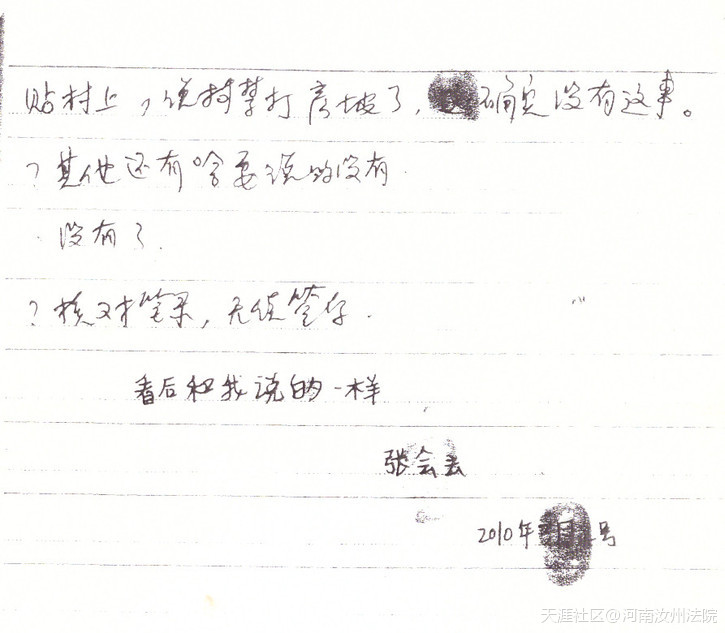 贴村上，说村禁打房坡了，确定没有这事。
？其他还有啥要说的没有
没有了.
？核对笔录，无误签字.
看后和我说的一样
张会
2010年 号
天涯社区@河南汝州法院